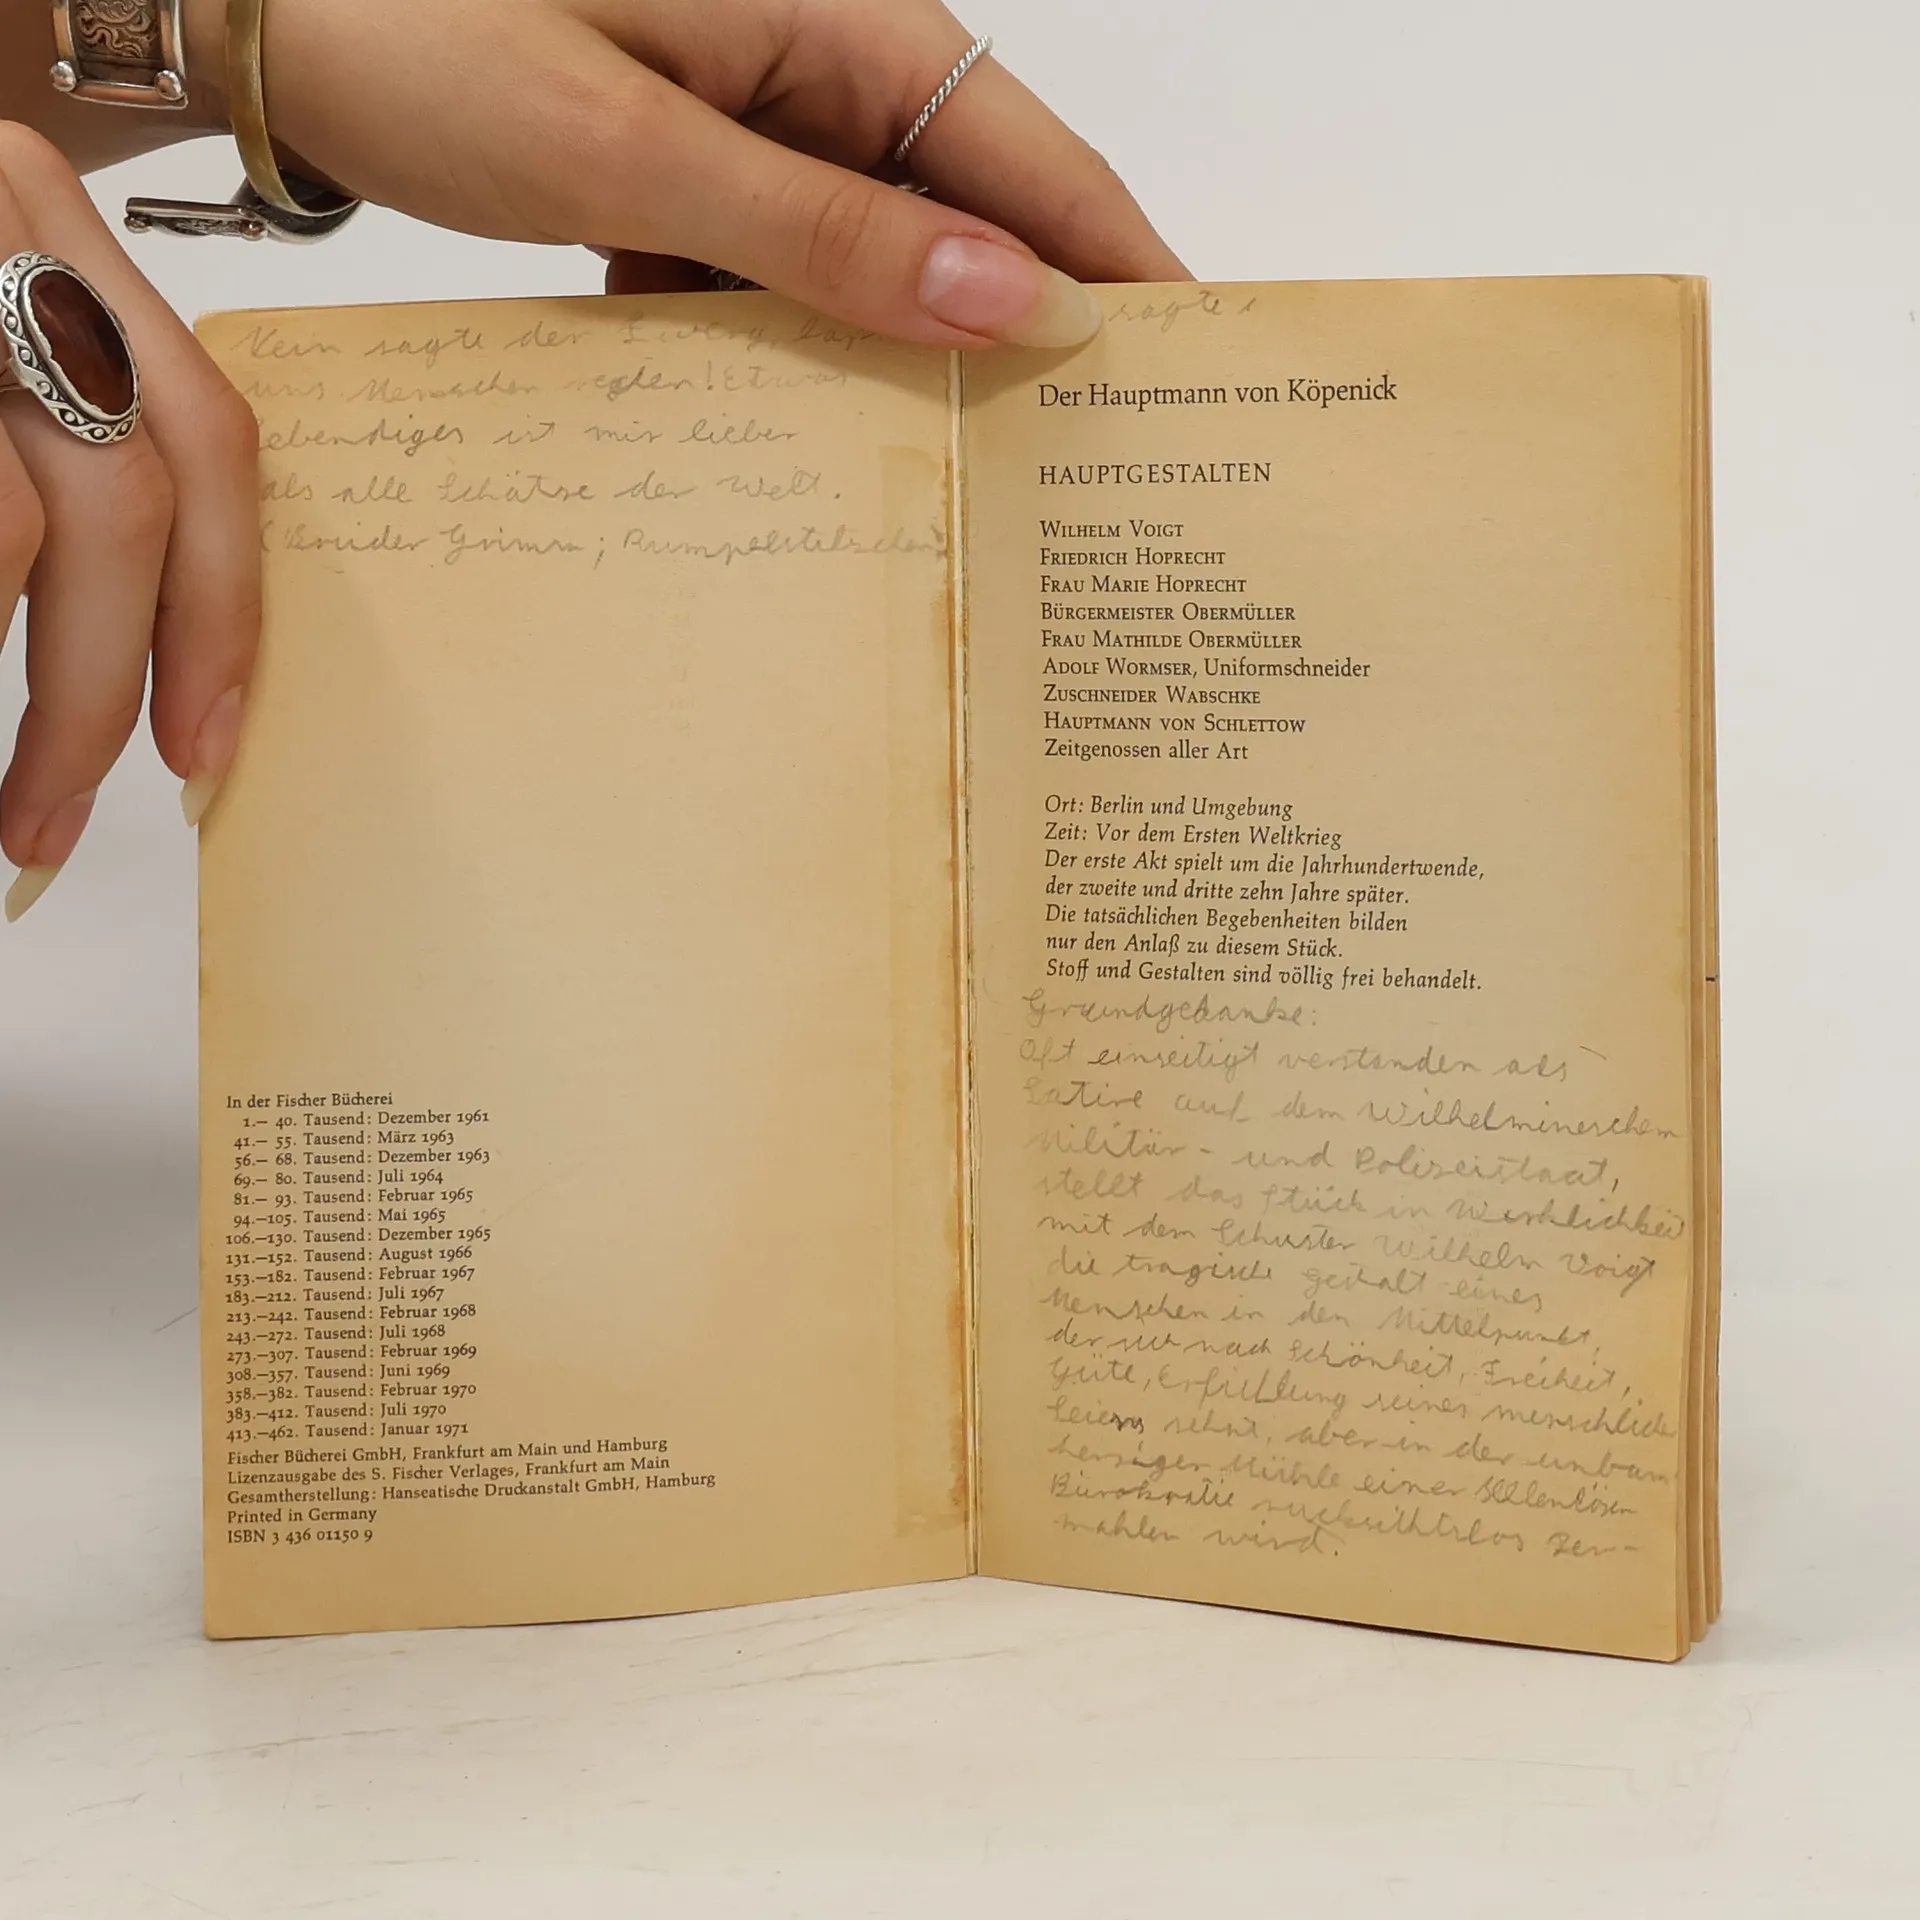 Nein sagte der Zwerg, laßt
uns Menschen reden! Etwas
Lebendiges ist mir lieber
als alle Schätze der Welt.
(Brüder Grimm; Rumpelstilzchen)
In der Fischer Bücherei
1.– 40. Tausend: Dezember 1961
41.– 55. Tausend: März 1963
56.– 68. Tausend: Dezember 1963
69.– 80. Tausend: Juli 1964
81.– 93. Tausend: Februar 1965
94.–105. Tausend: Mai 1965
106.–130. Tausend: Dezember 1965
131.–152. Tausend: August 1966
153.–182. Tausend: Februar 1967
183.–212. Tausend: Juli 1967
213.–242. Tausend: Februar 1968
243.–272. Tausend: Juli 1968
273.–307. Tausend: Februar 1969
308.–357. Tausend: Juni 1969
358.–382. Tausend: Februar 1970
383.–412. Tausend: Juli 1970
413.–462. Tausend: Januar 1971
Fischer Bücherei GmbH, Frankfurt am Main und Hamburg
Lizenzausgabe des S. Fischer Verlages, Frankfurt am Main
Gesamtherstellung: Hanseatische Druckanstalt GmbH, Hamburg
Printed in Germany
ISBN 3 436 01150 9
sagte
Der Hauptmann von Köpenick
HAUPTGESTALTEN
WILHELM VOIGT
FRIEDRICH HOPRECHT
FRAU MARIE HOPRECHT
BÜRGERMEISTER OBERMÜLLER
FRAU MATHILDE OBERMÜLLER
ADOLF WORMSER, Uniformschneider
ZUSCHNEIDER WABSCHKE
HAUPTMANN VON SCHLETTOW
Zeitgenossen aller Art
Ort: Berlin und Umgebung
Zeit: Vor dem Ersten Weltkrieg
Der erste Akt spielt um die Jahrhundertwende,
der zweite und dritte zehn Jahre später.
Die tatsächlichen Begebenheiten bilden
nur den Anlaß zu diesem Stück.
Stoff und Gestalten sind völlig frei behandelt.
Grundgedanke:
Oft einseitigt verstanden als
Satire auf dem Wilhelmineschem
Militär- und Polizeistaat,
stellt das Stück in Wirklichkeit
mit dem Schuster Wilhelm Voigt
die tragische Gestalt eines
Menschen in den Mittelpunkt,
der nach Schönheit, Freiheit,
Güte, Erfüllung seines menschlichen
sehnt, aber in der unbarm
herziger Mühle einer seelenlösen
Bürokratie rücksichtslos zer-
mahlen wird.